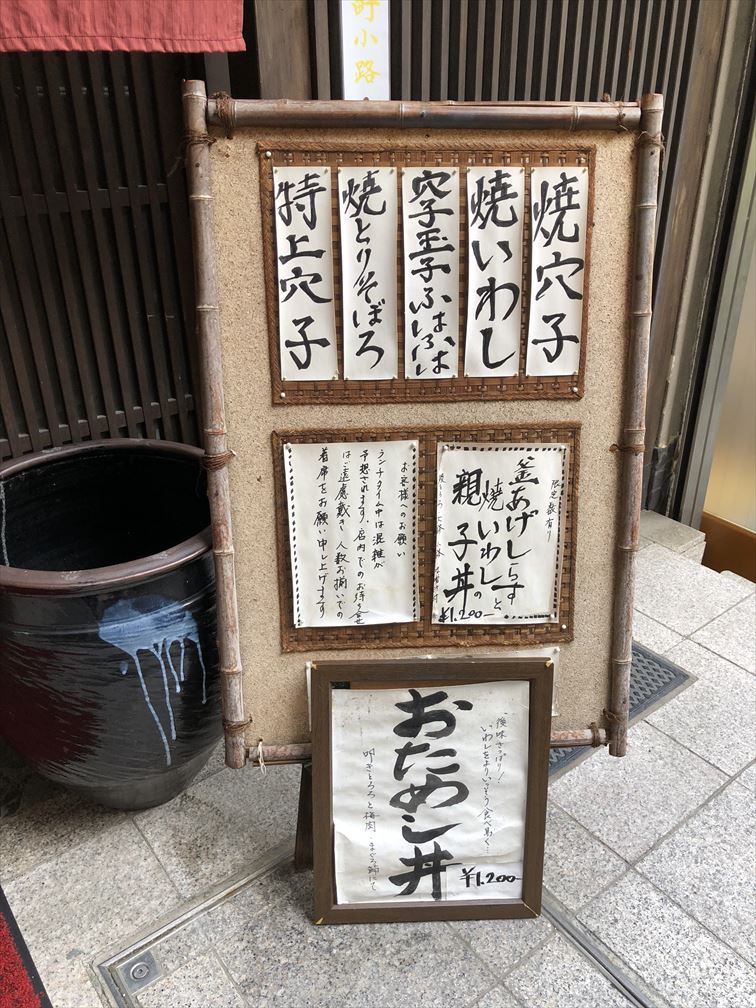 町小路
焼穴子
焼いわし
穴子玉子ふはふは
焼とりそぼろ
特上穴子
限定数有り
釜あげしらすと
焼いわしの
親子丼
¥1.200-
お客様へのお願い
ランチタイム中は混雑が
予想されます。店内でのお待ち合せ
はご遠慮戴き、人数お揃いでの
着席をお願い申し上げます
後味さっぱり!
いわしをよりいっそう食べ易く…
おためし丼
叩きとろろと梅肉
¥1.200-